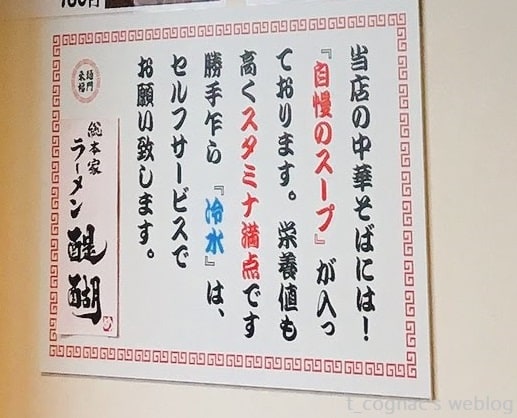 当店の中華そばには！
『自慢のスープ』が入っ
ております。栄養値も
高くスタミナ満点です
勝手乍ら『冷水』は、
セルフサービスで
お願い致します。
総本家
ラーメン醍醐
t_cognac's weblog